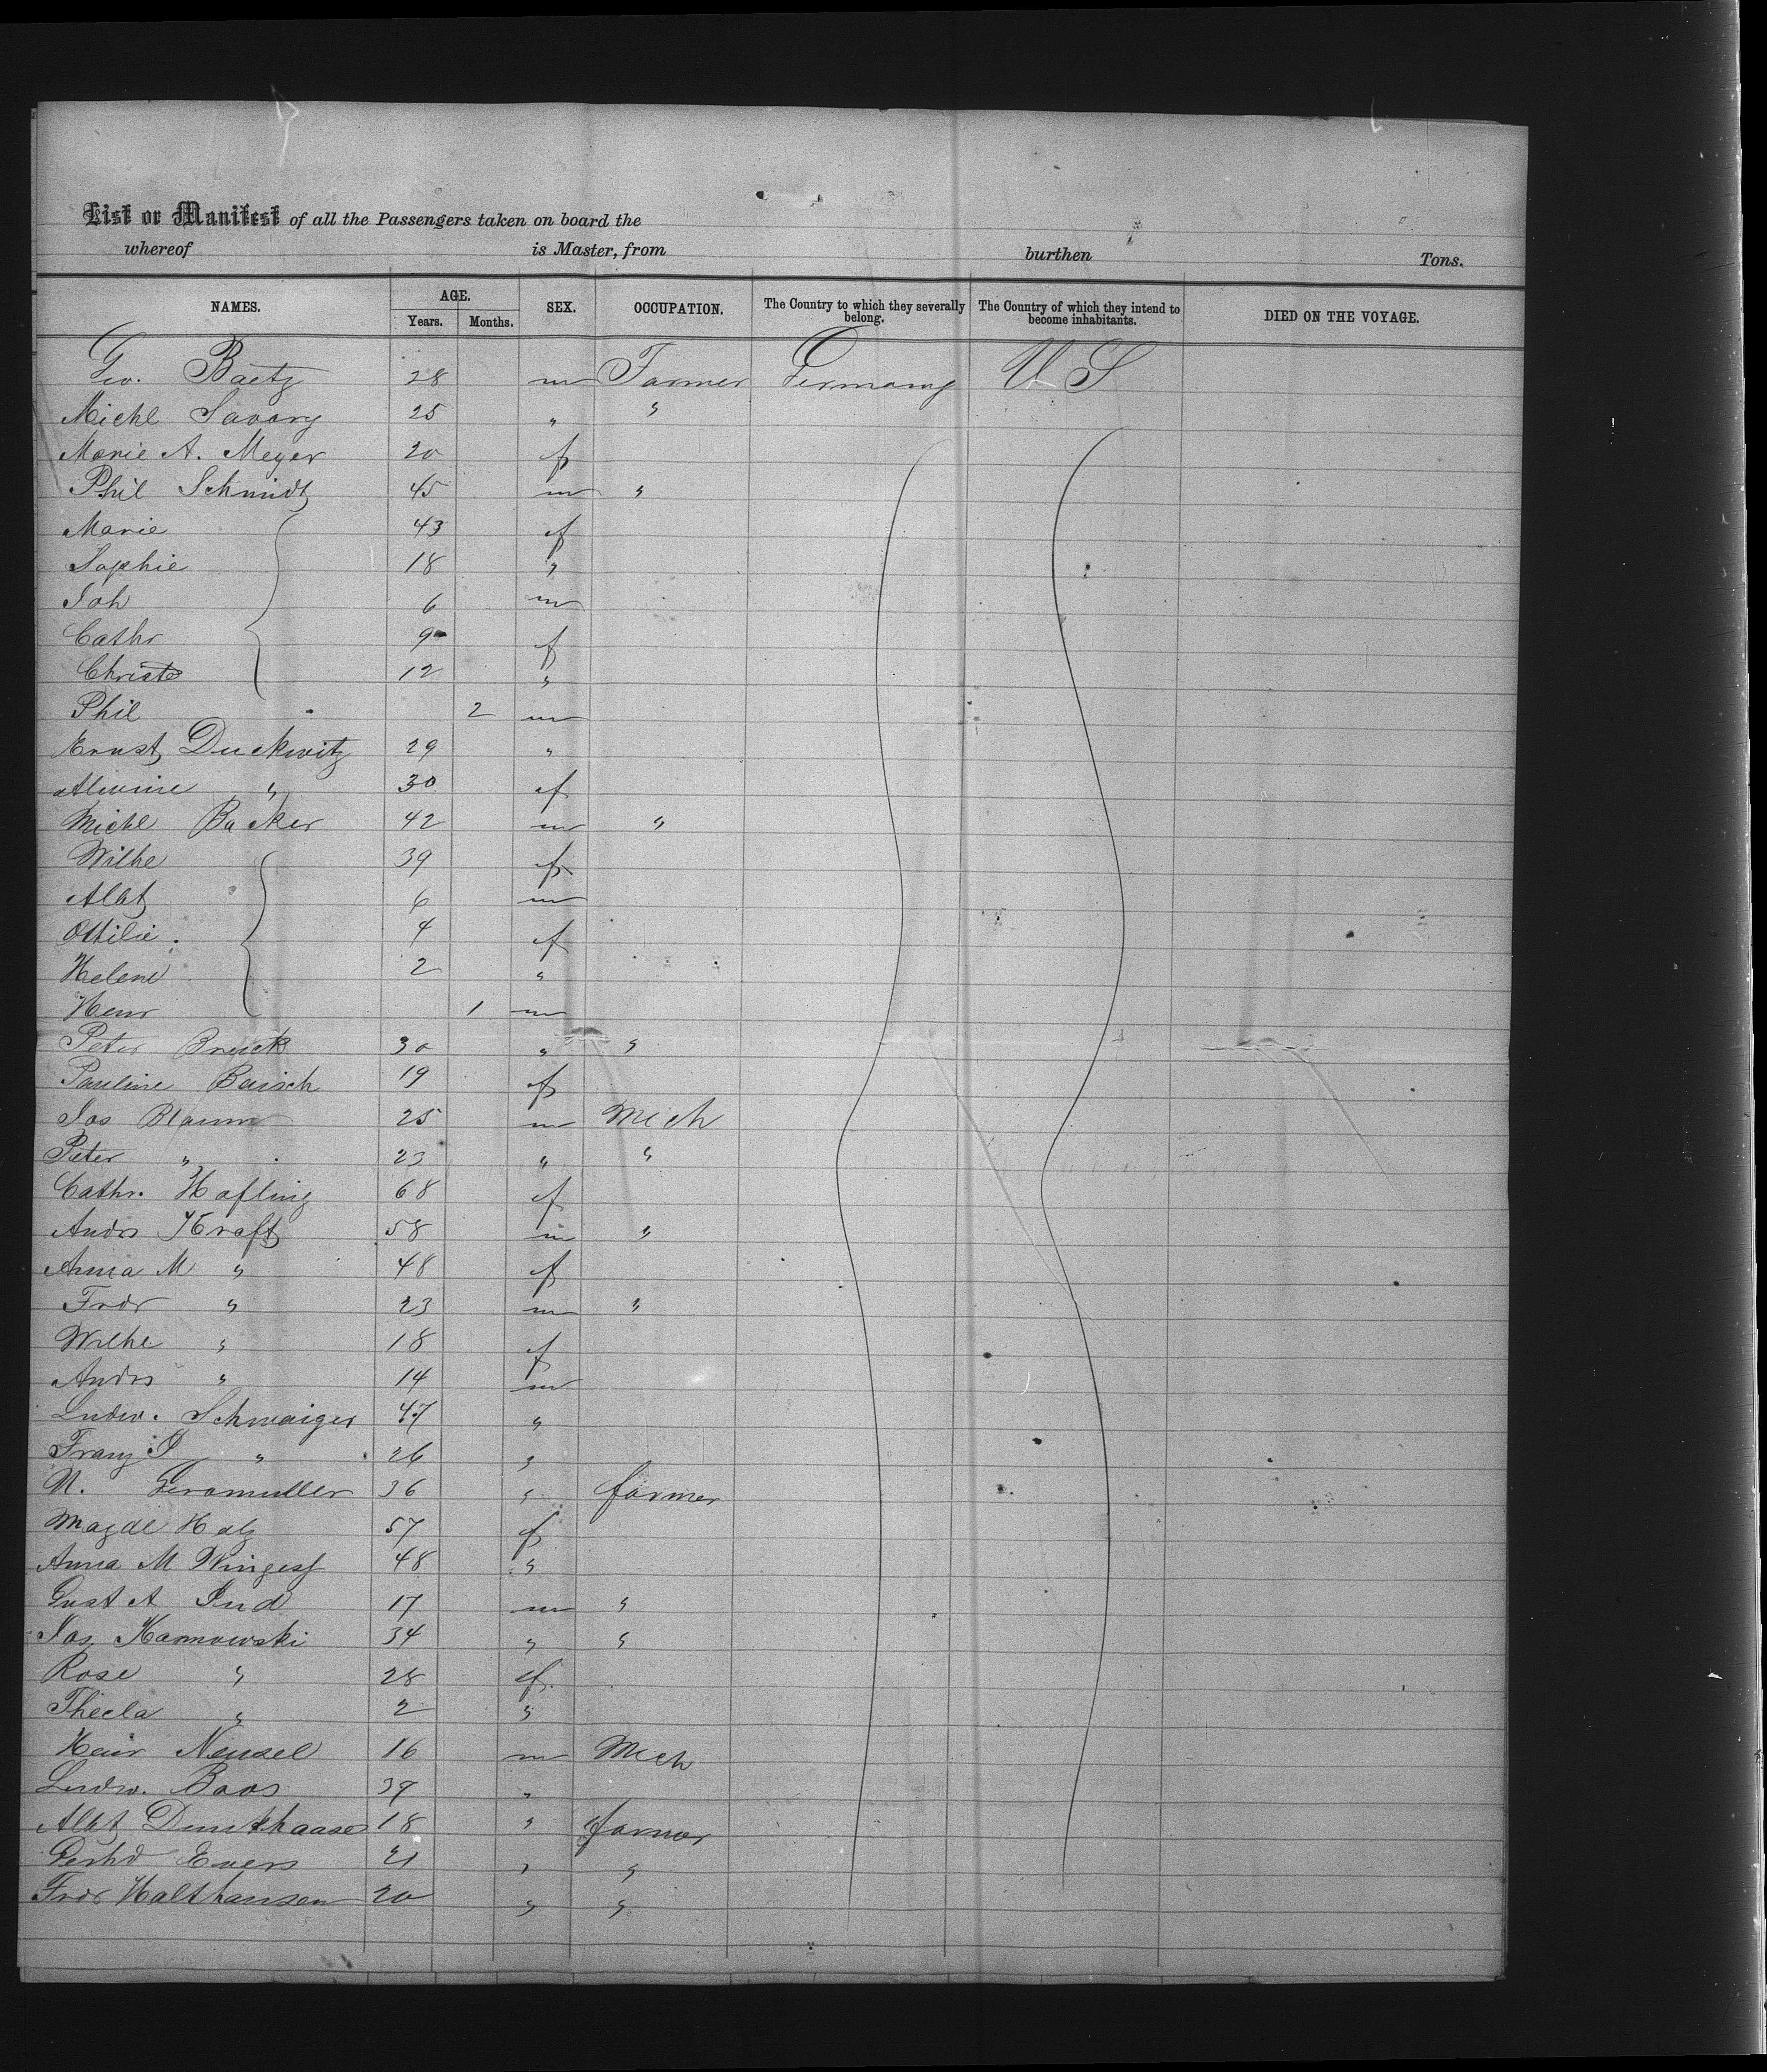 List or Manifest of all the Passengers taken on board the
whereof is Master, from burthen Tons.
NAMES. AGE. Years. Months. SEX. OCCUPATION. The Country to which they severally belong. The Country of which they intend to become inhabitants. DIED ON THE VOYAGE.
Geo. Baetz 28 m Farmer Germany U S
Michl Savary 25 " "
Marie A. Meyer 20 f
Phil Schmidt 45 m "
Marie 43 f
Sophie 18 "
Joh 6 m
Cathr 9 f
Christe 12 "
Phil 2 m
Ernst Duckwitz 29 "
Alwine " 30 f
Michl Backer 42 m "
Wilhe 39 f
Albt 6 m
Ottilie 4 f
Helene 2 "
Henr 1 m
Peter Brueck 30 " "
Pauline Baisch 19 f
Jos Blaum 25 m Mech
Peter " 23 " "
Cathr. Hofling 68 f
Andrs Kraft 58 m "
Anna M " 48 f
Fredr " 23 m "
Wilhe " 18 f
Andrs " 14 m
Ludw. Schwaiger 47 "
Franz J " 26 "
N. 36 " farmer
Magdl Holz 57 f
Anna M 48 "
Gust A Jud 17 m "
Jos. Kamowski 34 " "
Rose " 28 f
Thecla " 2 "
Heinr Neusel 16 m Mech
Ludw. Boos 39 "
Albt Dunkhaase 18 " farmer
Gerhd Evers 21 " "
Fredr Halthausen 20 " "